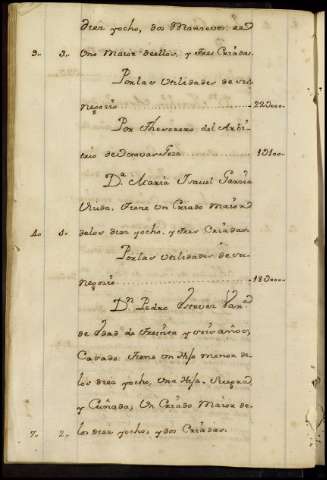 diez yocho, dos Mancevos, el
3,, 3,, Uno Maior deellos, y tres Criadas.
Por las Utilidades de su
negocio 22000
Por Thesorero del Arbi
trio de 1º100
D.ª Maria Isavel Garcia
Viuda, tiene un Criado Maior
4,, 4,, delos diez yocho, y tres Criadas.
Por las Utilidades de su
negocio 18000
D.n Pedro Estevez
de Edad de treinta y seis años,
Casado, tiene un Hijo menor de
los diez yocho, Una Hija, Suegra
y Cuñada, Un Criado Maior de
7,, 2,, los diez yocho, y dos Criadas.